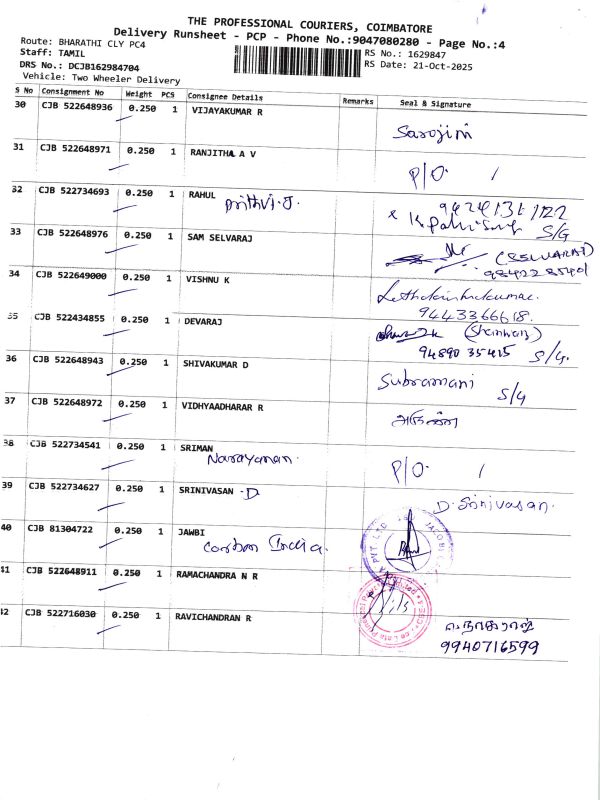 THE PROFESSIONAL COURIERS, COIMBATORE
Delivery Runsheet - PCP - Phone No.:9047080280 - Page No.:4
Route: BHARATHI CLY PC4
RS No.: 1629847
Staff: TAMIL
RS Date: 21-Oct-2025
DRS No.: DCJB162984704
Vehicle: Two Wheeler Delivery
S No Consignment No Weight PCS Consignee Details Remarks Seal & Signature
30 CJB 522648936 0.250 1 VIJAYAKUMAR R Sarojini
31 CJB 522648971 0.250 1 RANJITHA A V P/O.
32 CJB 522734693 0.250 1 RAHUL
Prithvi.J.
33 CJB 522648976 0.250 1 SAM SELVARAJ S/G
(SELVARAJ)
34 CJB 522649000 0.250 1 VISHNU K
9443366618.
35 CJB 522434855 0.250 1 DEVARAJ
94890 35415 S/G.
36 CJB 522648943 0.250 1 SHIVAKUMAR D Subramani S/G
37 CJB 522648972 0.250 1 VIDHYAADHARAR R
38 CJB 522734541 0.250 1 SRIMAN
Narayanan. P/O.
39 CJB 522734627 0.250 1 SRINIVASAN .D D. Srinivasan.
40 CJB 81304722 0.250 1 JAWBI
Carbon India.
41 CJB 522648911 0.250 1 RAMACHANDRA N R
42 CJB 522716030 0.250 1 RAVICHANDRAN R
9940716599